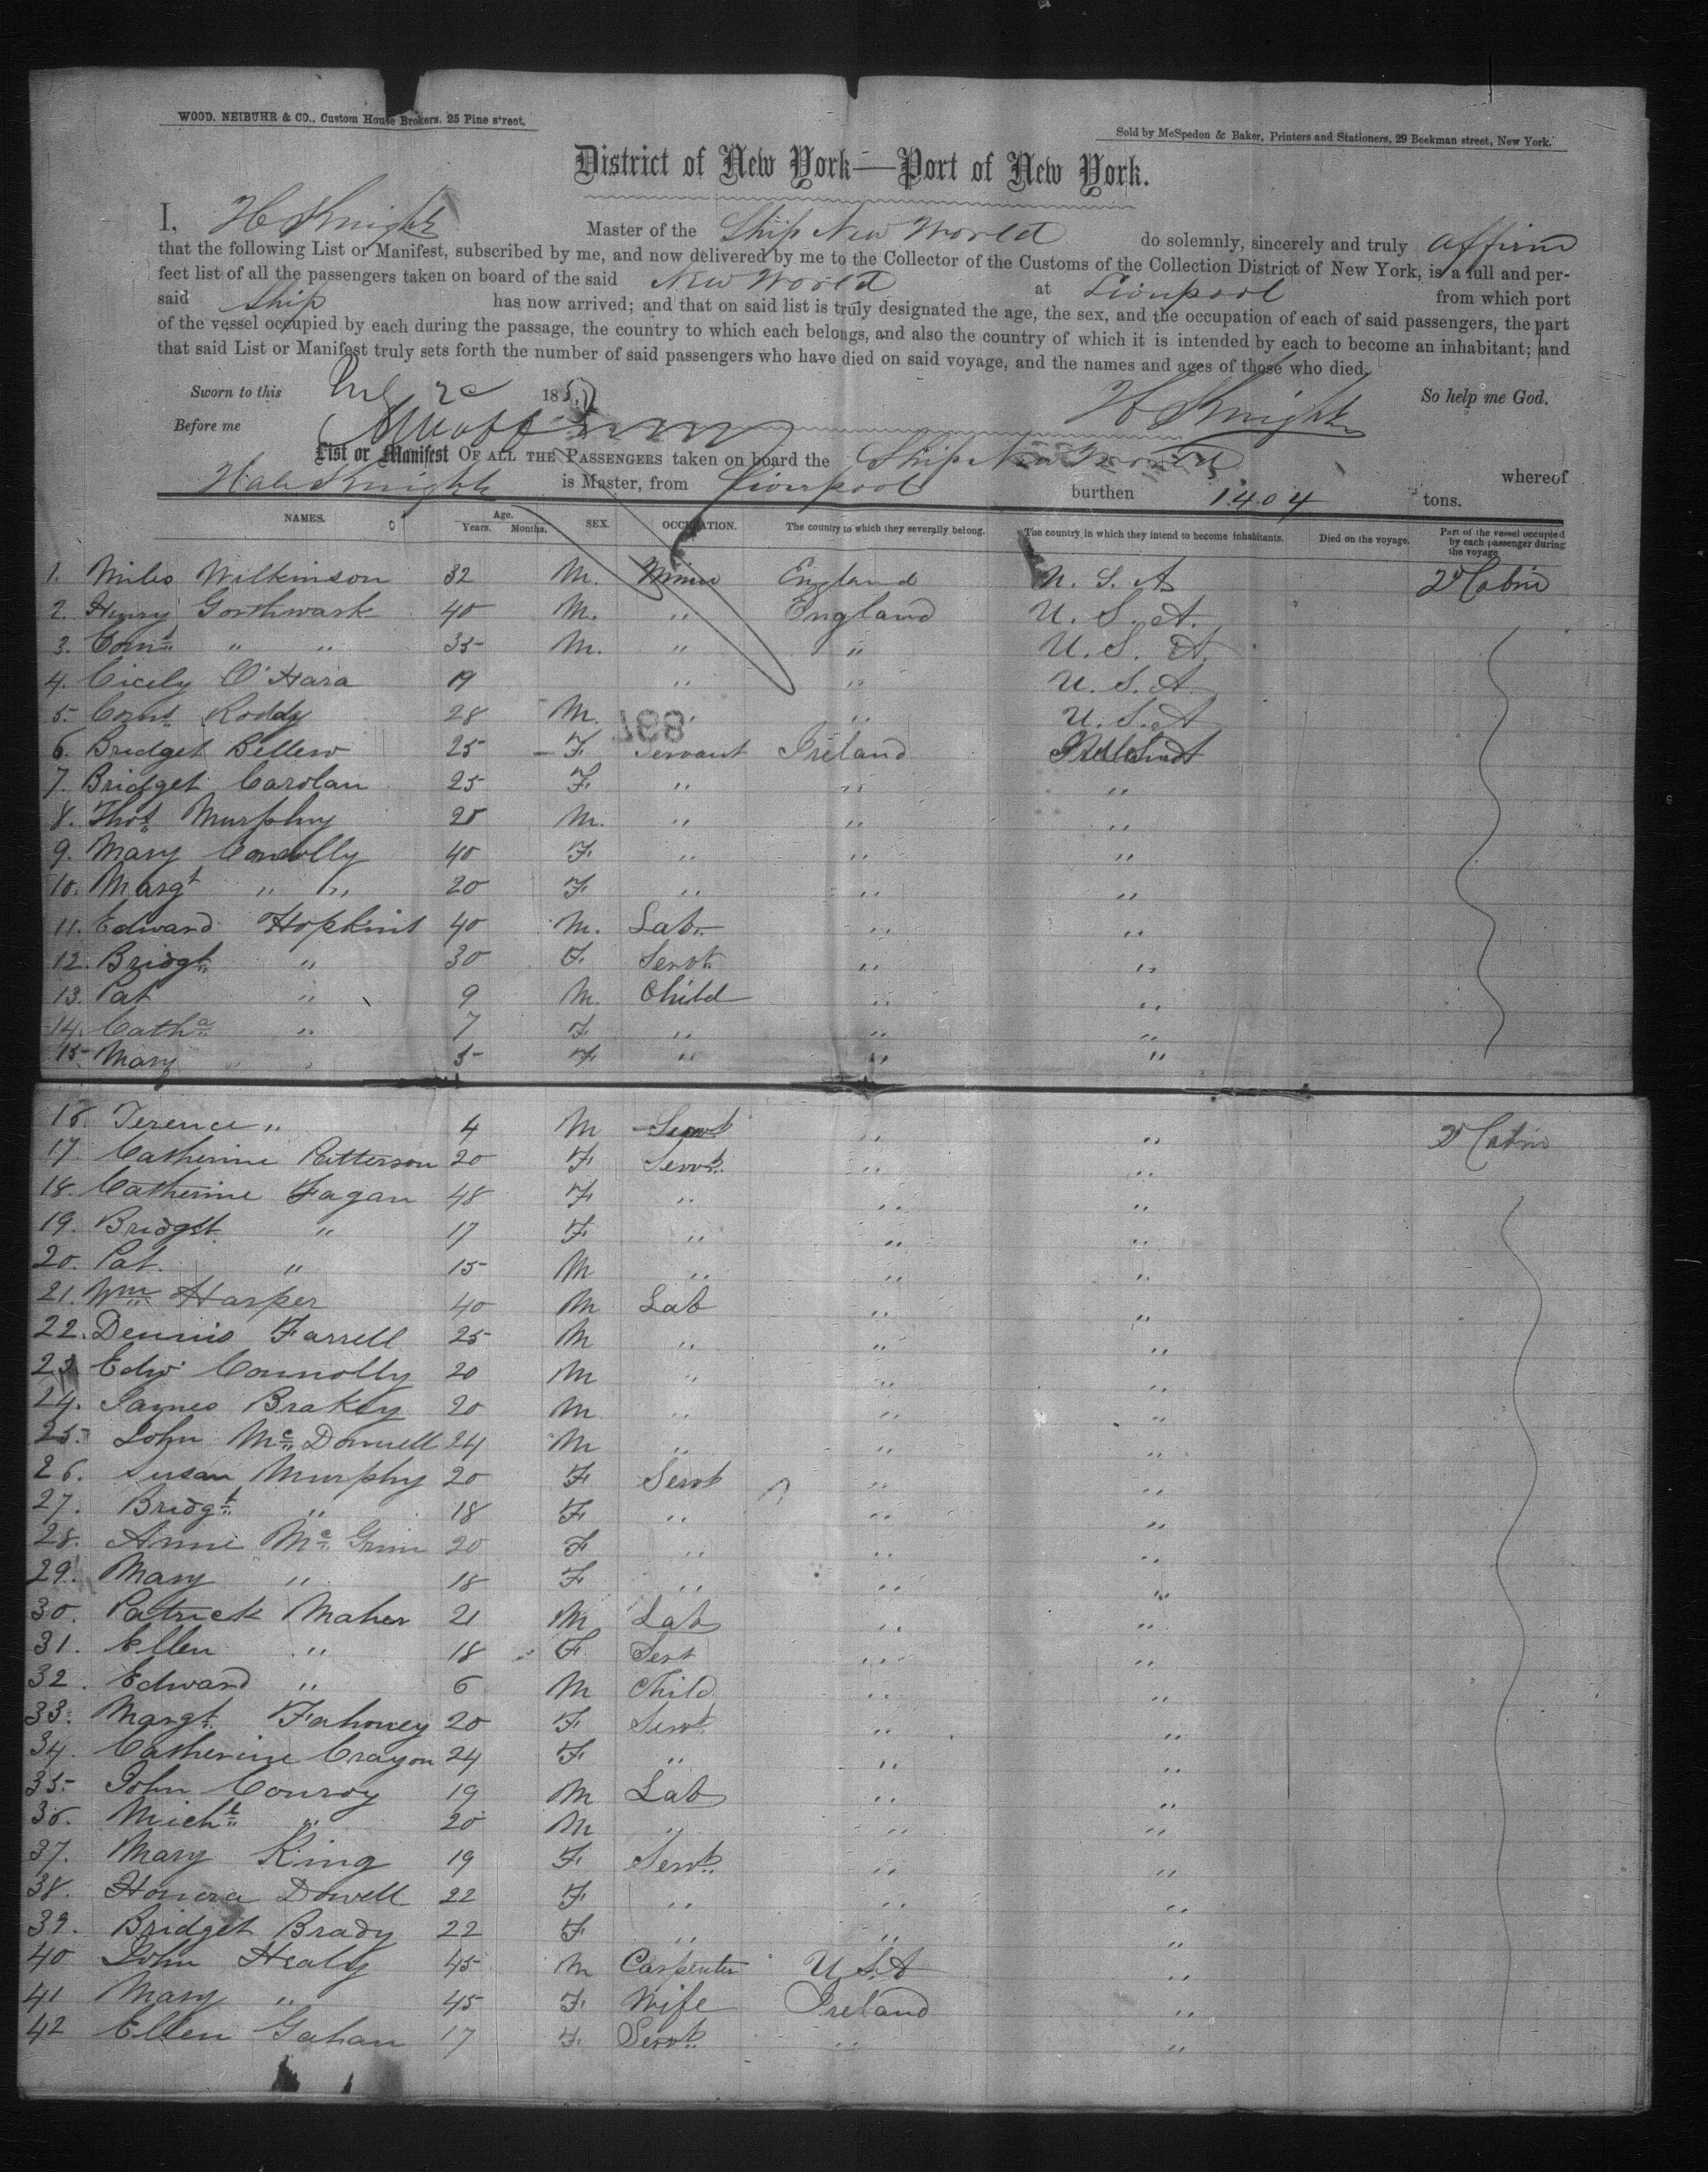 WOOD, NEIBUHR & CO., Custom House Brokers, 25 Pine street.
Sold by McSpedon & Baker, Printers and Stationers, 29 Beekman street, New York.
District of New York—Port of New York.
I, H Knight Master of the Ship New World do solemnly, sincerely and truly affirm
that the following List or Manifest, subscribed by me, and now delivered by me to the Collector of the Customs of the Collection District of New York, is a full and per-
fect list of all the passengers taken on board of the said New World at Liverpool from which port
said Ship has now arrived; and that on said list is truly designated the age, the sex, and the occupation of each of said passengers, the part
of the vessel occupied by each during the passage, the country to which each belongs, and also the country of which it is intended by each to become an inhabitant; and
that said List or Manifest truly sets forth the number of said passengers who have died on said voyage, and the names and ages of those who died.
Sworn to this 185 So help me God.
Before me H Knight
List or Manifest OF ALL THE PASSENGERS taken on board the Ship New World whereof
Hale Knight is Master, from Liverpool burthen 1404 tons.
NAMES. Age. Years. Months. SEX. OCCUPATION. The country to which they severally belong. The country in which they intend to become inhabitants. Died on the voyage. Part of the vessel occupied by each passenger during the voyage
1. Miles Wilkinson 32 M. Miner England U. S. A 2d Cabin
2. Henry Gorthwark 40 M. " England U. S. A.
3. Corns " " 35 M. " " U. S. A.
4. Cicely O'Hara 19 " " U. S. A
5. Corns Roddy 28 M. " " U. S. A
897
6. Bridget Bellew 25 F Servant Ireland
7. Bridget Carolan 25 F. " " "
8. Thos Murphy 20 M. " " "
9. Mary Conolly 40 F " " "
10. Margt " " 20 F " " "
11. Edward Hopkins 40 M. Lab. " "
12. Bridgt " 30 F. Servt " "
13. Pat " 9 M. Child " "
14. Catha " 7 F " " "
15. Mary " 5 F " " "
16. Terence " 4 M Servt " " 2d Cabin
17. Catherine Patterson 20 F Servt " "
18. Catherine Fagan 48 F " " "
19. Bridget " 17 F " " "
20. Pat. " 15 M " " "
21. Wm Harper 40 M Lab " "
22. Dennis Farrell 25 M " " "
23. Edw Connolly 20 M " " "
24. James Brakey 20 M " " "
25. John Mc Donnell 24 M " " "
26. Susan Murphy 20 F Servt " "
27. Bridgt " 18 F " " "
28. Anne Mc 20 F " " "
29. Mary " 18 F " " "
30. Patrick Maher 21 M Lab " "
31. Ellen " 18 F Sert " "
32. Edward " 6 M Child " "
33. Margt Fahoney 20 F Servt " "
34. Catherine Crayon 24 F " " "
35. John Conroy 19 M Lab " "
36. Michl " 20 M " " "
37. Mary King 19 F Servt " "
38. Honora Dowell 22 F " " "
39. Bridget Brady 22 F " " "
40 John Healy 45 M Carpenter U.S.A "
41 Mary " 45 F. Wife Ireland "
42 Ellen Gahan 17 F Servt " "